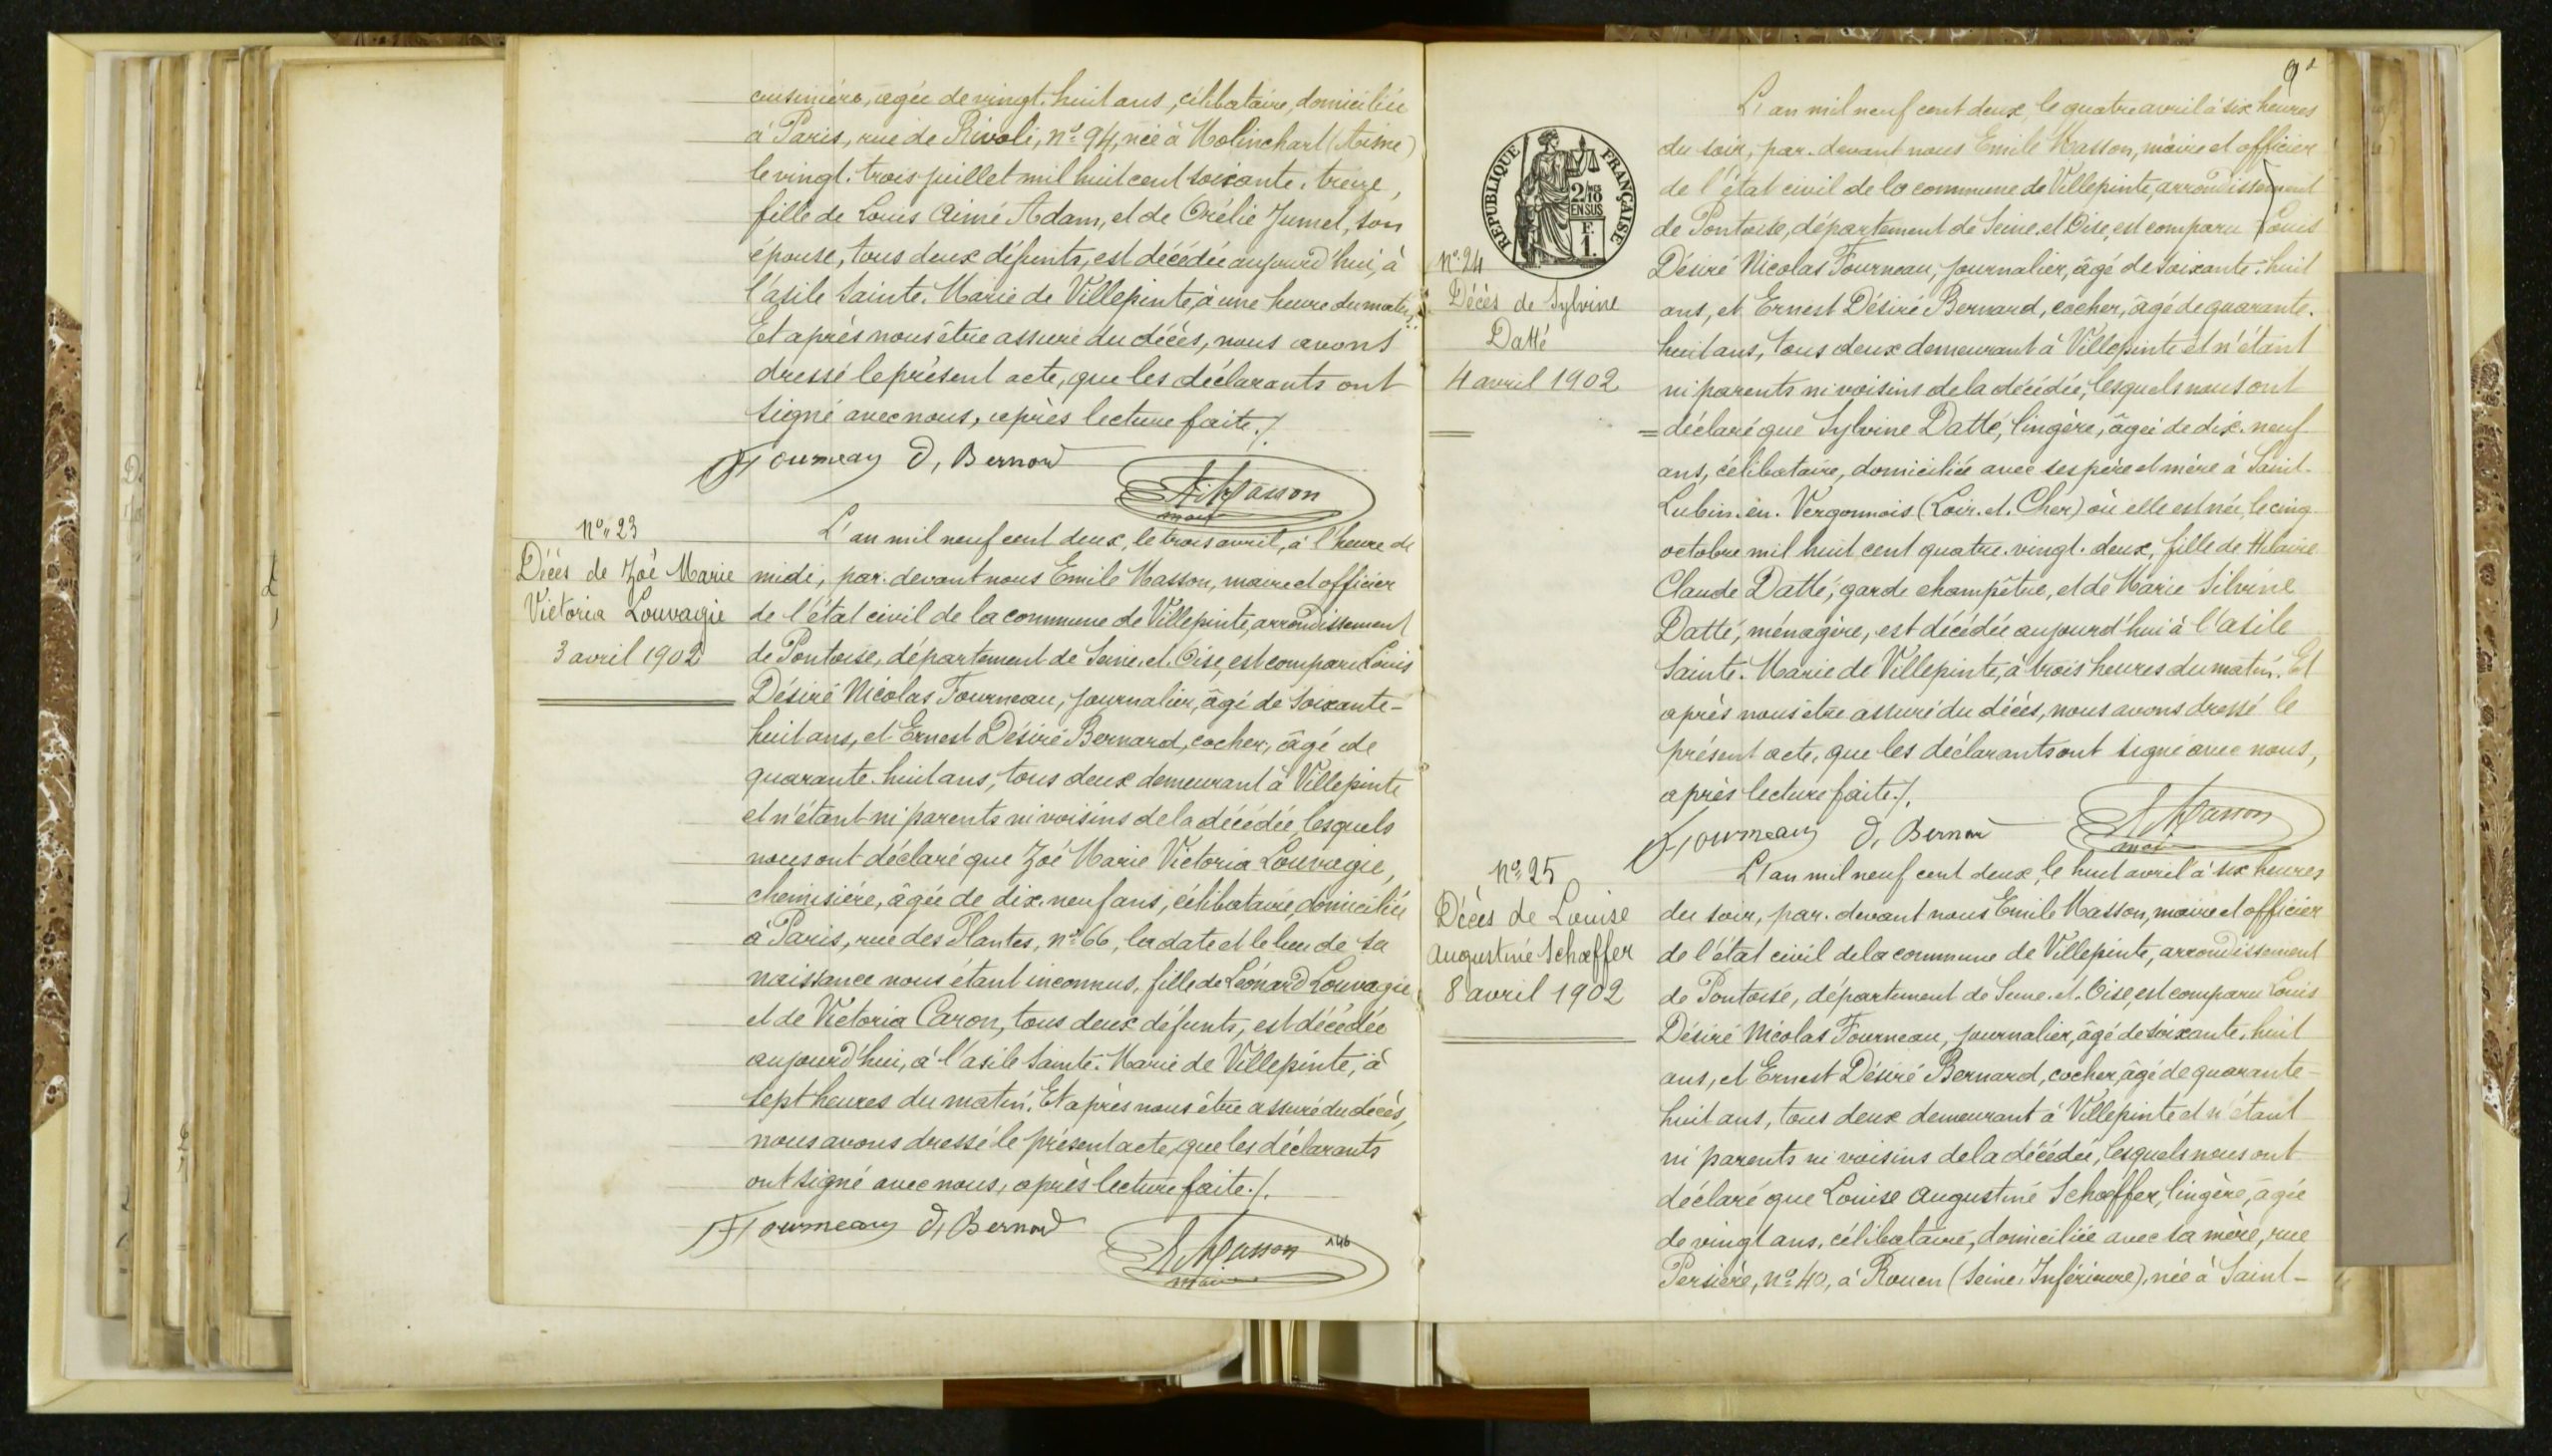 cuisinière, âgée de vingt-huit ans, célibataire, domiciliée
à Paris, rue de Rivoli, nº 94, née à Molinchart (Aisne)
le vingt-trois juillet mil huit cent soixante-treize,
fille de Louis Aimé Adam, et de Orélie Jumel, son
épouse, tous deux défunts, est décédée aujourd'hui, à
l'asile Sainte-Marie de Villepinte, à une heure du matin.
Et après nous être assuré du décès, nous avons
dressé le présent acte, que les déclarants ont
signé avec nous, après lecture faite./.
Fourneau D, Bernard
Masson
maire
Nº 23
Décès de Zoé Marie
Victoria Louvagie
3 avril 1902
L'an mil neuf cent deux, le trois avril, à l'heure de
midi, par-devant nous Emile Masson, maire et officier
de l'état civil de la commune de Villepinte, arrondissement
de Pontoise, département de Seine-et-Oise, est comparu Louis
Désiré Nicolas Fourneau, journalier, âgé de soixante-
huit ans, et Ernest Désiré Bernard, cocher, âgé de
quarante-huit ans, tous deux demeurant à Villepinte
et n'étant ni parents ni voisins de la décédée, lesquels
nous ont déclaré que Zoé Marie Victoria Louvagie,
chemisière, âgée de dix-neuf ans, célibataire, domiciliée
à Paris, rue des Plantes, nº 66, la date et le lieu de sa
naissance nous étant inconnus, fille de Léonard Louvagie
et de Victoria Caron, tous deux défunts, est décédée
aujourd'hui, à l'asile Sainte-Marie de Villepinte, à
sept heures du matin. Et après nous être assuré du décès,
nous avons dressé le présent acte, que les déclarants
ont signé avec nous, après lecture faite./.
Fourneau D, Bernard
Masson
maire
146
9
RÉPUBLIQUE FRANÇAISE
2/10
EN SUS
F.
1.
Nº 24
Décès de Sylvine
Datté
4 avril 1902
L'an mil neuf cent deux, le quatre avril à six heures
du soir, par-devant nous Emile Masson, maire et officier
de l'état civil de la commune de Villepinte, arrondissement
de Pontoise, département de Seine-et-Oise, est comparu Louis
Désiré Nicolas Fourneau, journalier, âgé de soixante-huit
ans, et Ernest Désiré Bernard, cocher, âgé de quarante-
huit ans, tous deux demeurant à Villepinte et n'étant
ni parents ni voisins de la décédée, lesquels nous ont
déclaré que Sylvine Datté, lingère, âgée de dix-neuf
ans, célibataire, domiciliée avec ses père et mère à Saint-
Lubin-en-Vergonnois (Loir-et-Cher) où elle est née, le cinq
octobre mil huit cent quatre-vingt-deux, fille de Hilaire
Claude Datté, garde champêtre, et de Marie Silvine
Datté, ménagère, est décédée aujourd'hui à l'asile
Sainte-Marie de Villepinte, à trois heures du matin. Et
après nous être assuré du décès, nous avons dressé le
présent acte, que les déclarants ont signé avec nous,
après lecture faite./.
Fourneau D, Bernard
Masson
maire
Nº 25
Décès de Louise
Augustine Schoeffer
8 avril 1902
L'an mil neuf cent deux, le huit avril à six heures
du soir, par-devant nous Emile Masson, maire et officier
de l'état civil de la commune de Villepinte, arrondissement
de Pontoise, département de Seine-et-Oise, est comparu Louis
Désiré Nicolas Fourneau, journalier, âgé de soixante-huit
ans, et Ernest Désiré Bernard, cocher, âgé de quarante-
huit ans, tous deux demeurant à Villepinte et n'étant
ni parents ni voisins de la décédée, lesquels nous ont
déclaré que Louise Augustine Schoeffer, lingère, âgée
de vingt ans, célibataire, domiciliée avec sa mère, rue
Persière, nº 40, à Rouen (Seine-Inférieure), née à Saint-